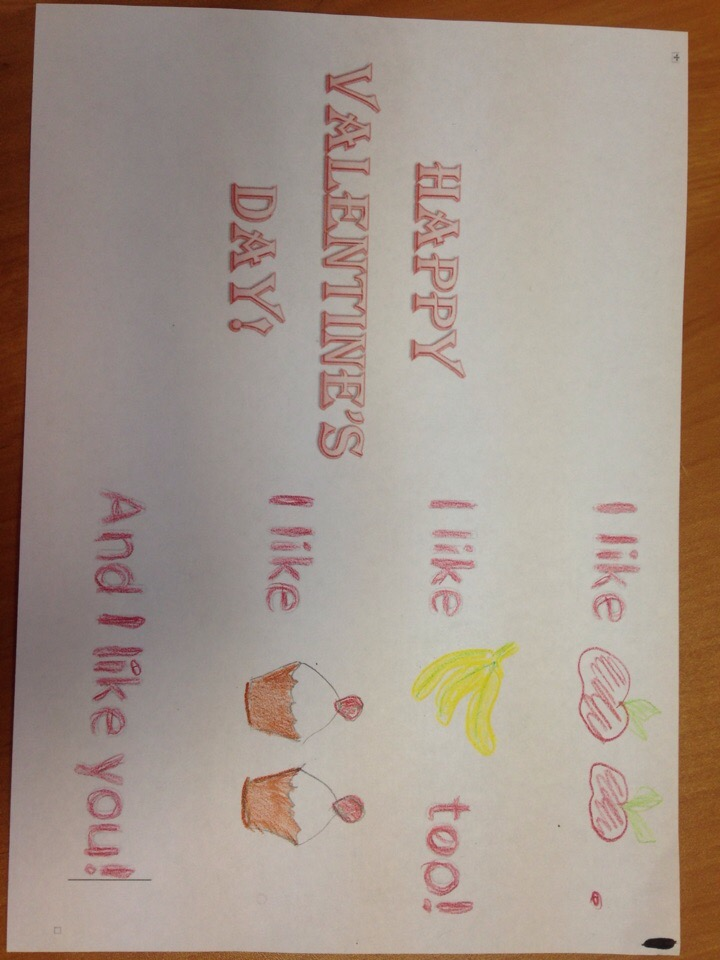 HAPPY
VALENTINE'S
DAY!
I like .
I like too!
I like
And I like you!